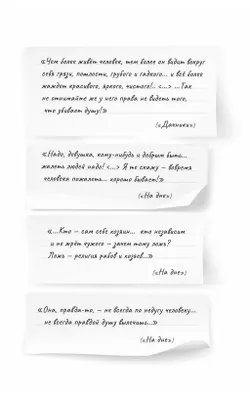 «Чем более живёт человек, тем более он видит вокруг
себя грязи, пошлости, грубого и гадкого... и всё более
жаждет красивого, яркого, чистого!.. <...> ...Так
не отнимайте же у него права не видеть того,
что убивает душу!»
(«Дачники»)
«Надо, девушка, кому-нибудь и добрым быть...
жалеть людей надо! <...> Я те скажу – вовремя
человека пожалеть... хорошо бывает!»
(«На дне»)
«...Кто – сам себе хозяин... кто независим
и не жрёт чужого – зачем тому ложь?
Ложь – религия рабов и хозяев...»
(«На дне»)
«Она, правда-то, – не всегда по недугу человеку...
не всегда правдой душу вылечишь...»
(«На дне»)